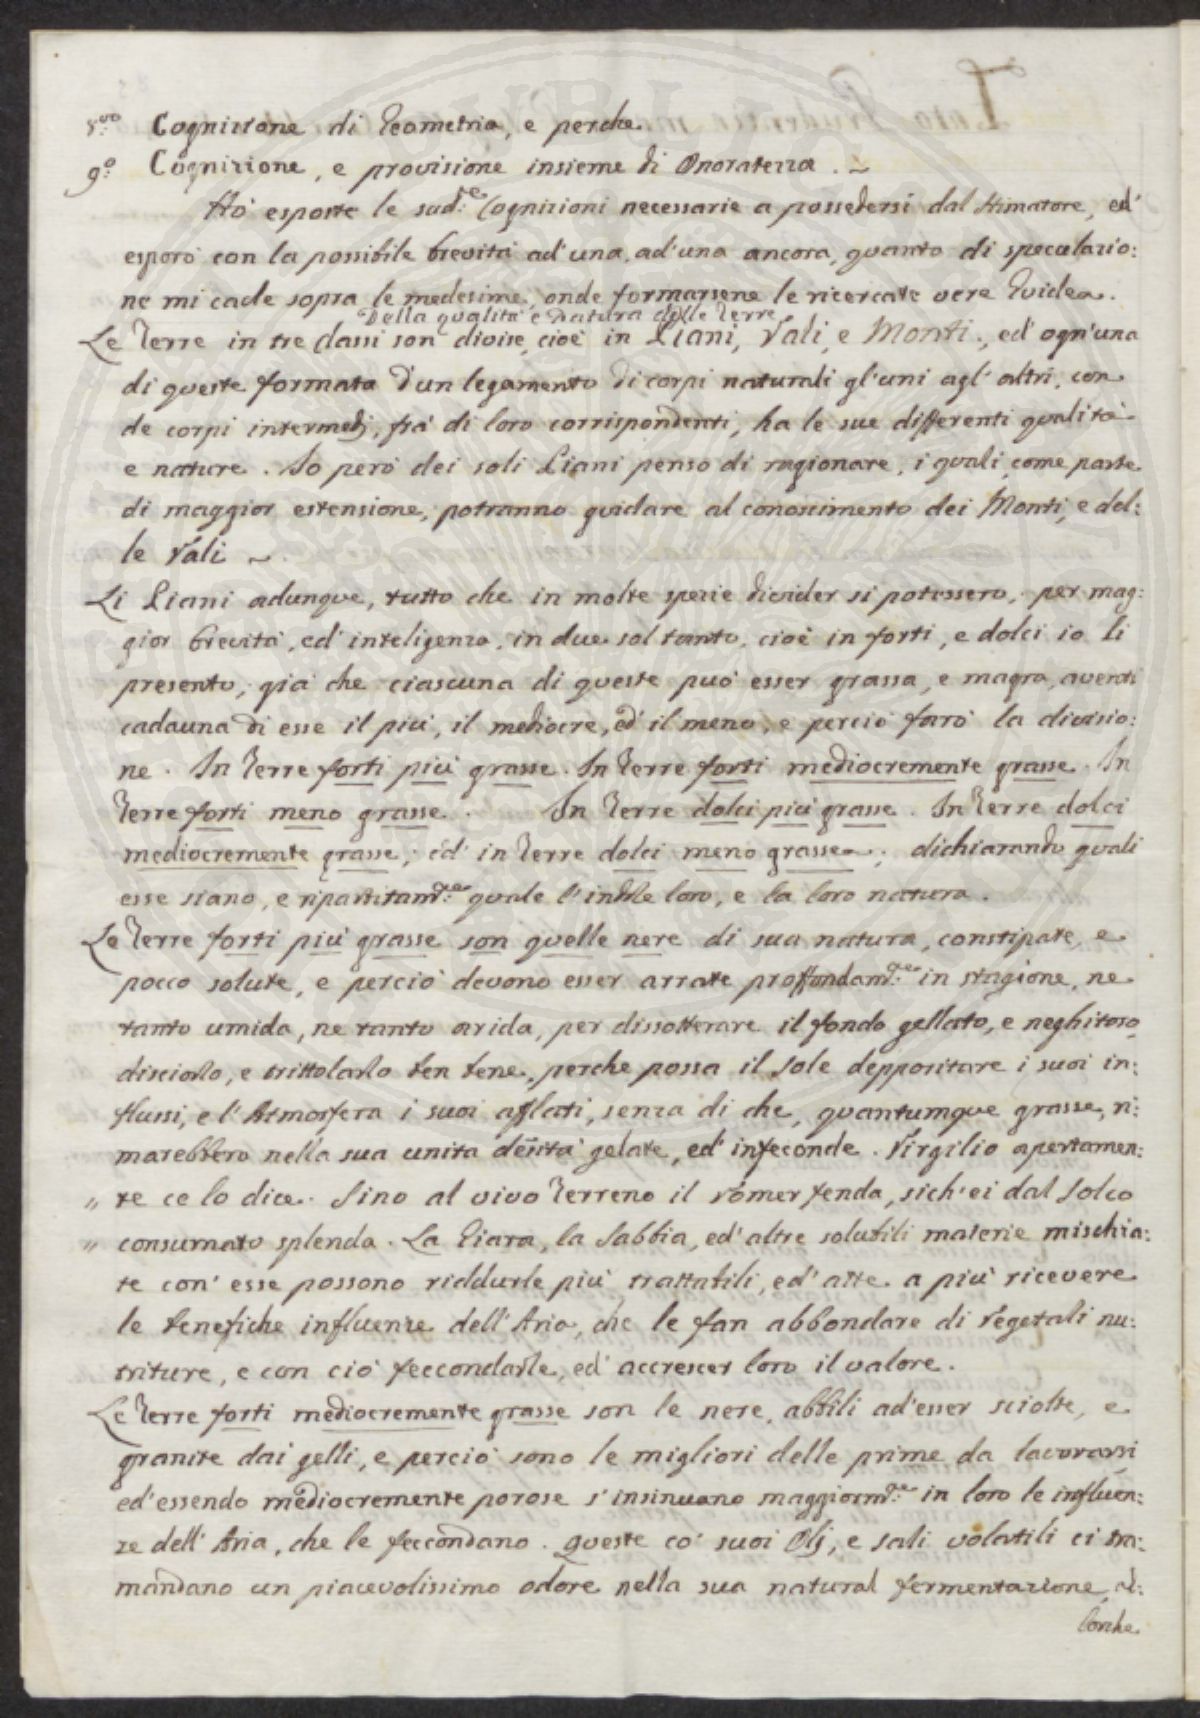 8.vo Cognizione di Geometria, e perche
9.o Cognizione, e provisione insieme di Onoratezza. ~
Hò esposte le sud.te Cognizioni necessarie a possedersi dal Stimatore, ed'
esporò con la possibile brevità ad' una, ad' una ancora, quanto di speculazio:
ne mi cade sopra le medesime, onde formarsene le ricercate vere Eidee.
Della qualità e Natura delle Terre
Le Terre in tre classi son divise, cioè in Piani, Vali, e Monti, ed' ogn'una
di queste formata d'un legamento di corpi naturali gl'uni agl' altri, con
de corpi intermedj, frà di loro corrispondenti, ha le sue differenti qualità
e nature. Io però dei soli Piani penso di ragionare, i quali, come parte
di maggior estensione, potranno guidare al conoscimento dei Monti, e del:
le Vali ~.
Li Piani adunque, tutto che in molte specie divider si potessero, per mag:
gior brevità, ed' inteligenza, in due sol tanto, cioè in forti, e dolci io li
presento, già che ciascuna di queste può esser grassa, e magra, aventi
cadauna di esse il più, il mediocre, ed' il meno, e perciò farò la divisio:
ne. In Terre forti più grasse. In Terre forti mediocremente grasse. In
Terre forti meno grasse. In Terre dolci più grasse. In Terre dolci
mediocremente grasse, ed' in Terre dolci meno grasse, dichiarando quali
esse siano, e ripartitam.te quale l'indole loro, e la loro natura.
Le Terre forti più grasse son quelle nere di sua natura, constipate, e
pocco solute, e perciò devono esser arrate proffondam.te in stagione, ne
tanto umida, ne tanto arida, per dissotterare il fondo gellato, e neghitoso
disciorlo, e trittolarlo ben bene, perche possa il Sole depporitare i suoi in:
flussi, e l'Atmosfera i suoi afflati, senza di che, quantumque grasse, ri:
marebbero nella sua unita densità gelate, ed' infeconde. Virgilio apertamen:
" te ce lo dice. Sino al vivo Terreno il vomer fenda, sich'ei dal Solco
" consumato splenda. La Giara, la Sabbia, ed' altre solubili materie mischia:
te con' esse possono riddurle più trattabili, ed' atte a più ricevere
le benefiche influenze dell'Aria, che le fan abbondare di vegetali nu:
triture, e con ciò feccondarle, ed' accrescer loro il valore.
Le Terre forti mediocremente grasse son le nere, abbili ad'esser sciolte, e
granite dai gelli, e perciò sono le migliori delle prime da lavorarsi
ed'essendo mediocremente porose s'insinuano maggiorm.te in loro le influen:
ze dell'Aria, che le feccondano. Queste co' suoi Olj, e sali volatili ci tra:
mandano un piacevolissimo odore nella sua natural fermentazione, al:
lorche